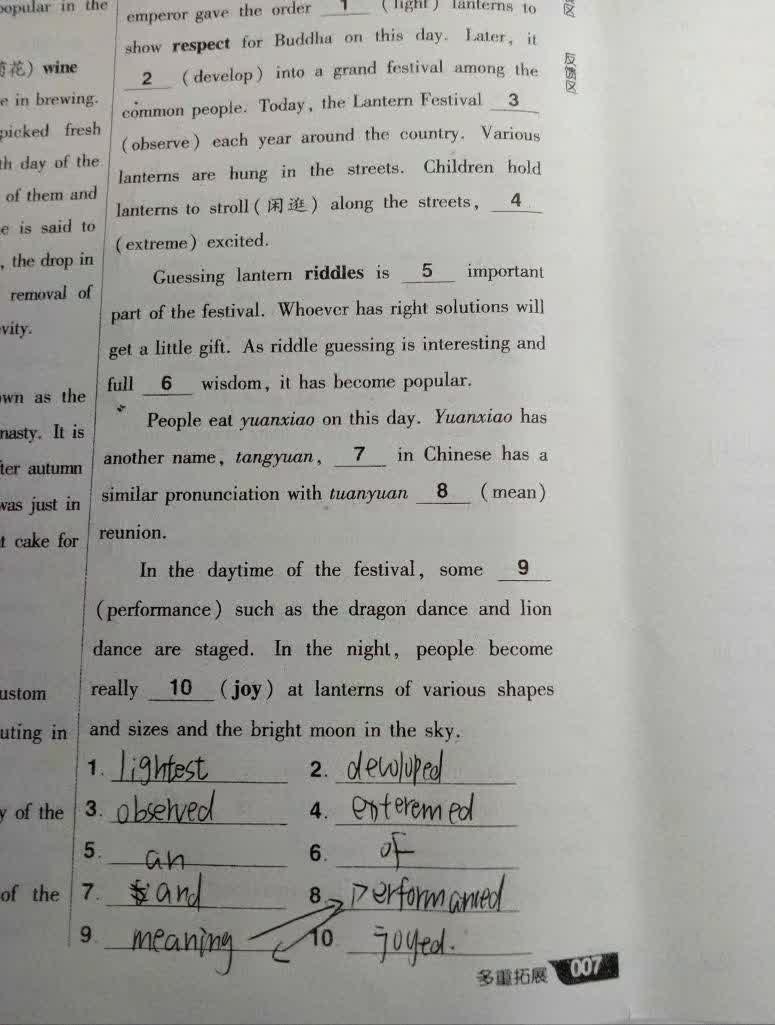 popular in the
花）wine
e in brewing.
picked fresh
th day of the
of them and
e is said to
, the drop in
removal of
vity.
own as the
nasty. It is
ter autumn
was just in
t cake for
ustom
uting in
y of the
of the
emperor gave the order 1 (light) lanterns to
show respect for Buddha on this day. Later, it
2 (develop) into a grand festival among the
common people. Today, the Lantern Festival 3
(observe) each year around the country. Various
lanterns are hung in the streets. Children hold
lanterns to stroll(闲逛) along the streets, 4
(extreme) excited.
Guessing lantern riddles is 5 important
part of the festival. Whoever has right solutions will
get a little gift. As riddle guessing is interesting and
full 6 wisdom, it has become popular.
People eat yuanxiao on this day. Yuanxiao has
another name, tangyuan, 7 in Chinese has a
similar pronunciation with tuanyuan 8 (mean)
reunion.
In the daytime of the festival, some 9
(performance) such as the dragon dance and lion
dance are staged. In the night, people become
really 10 (joy) at lanterns of various shapes
and sizes and the bright moon in the sky.
1. lightest 2. devoloped
3. observed 4. exteremed
5. an 6. of
7. and 8. performanced
9. meaning 10. joyed.
多重拓展 007